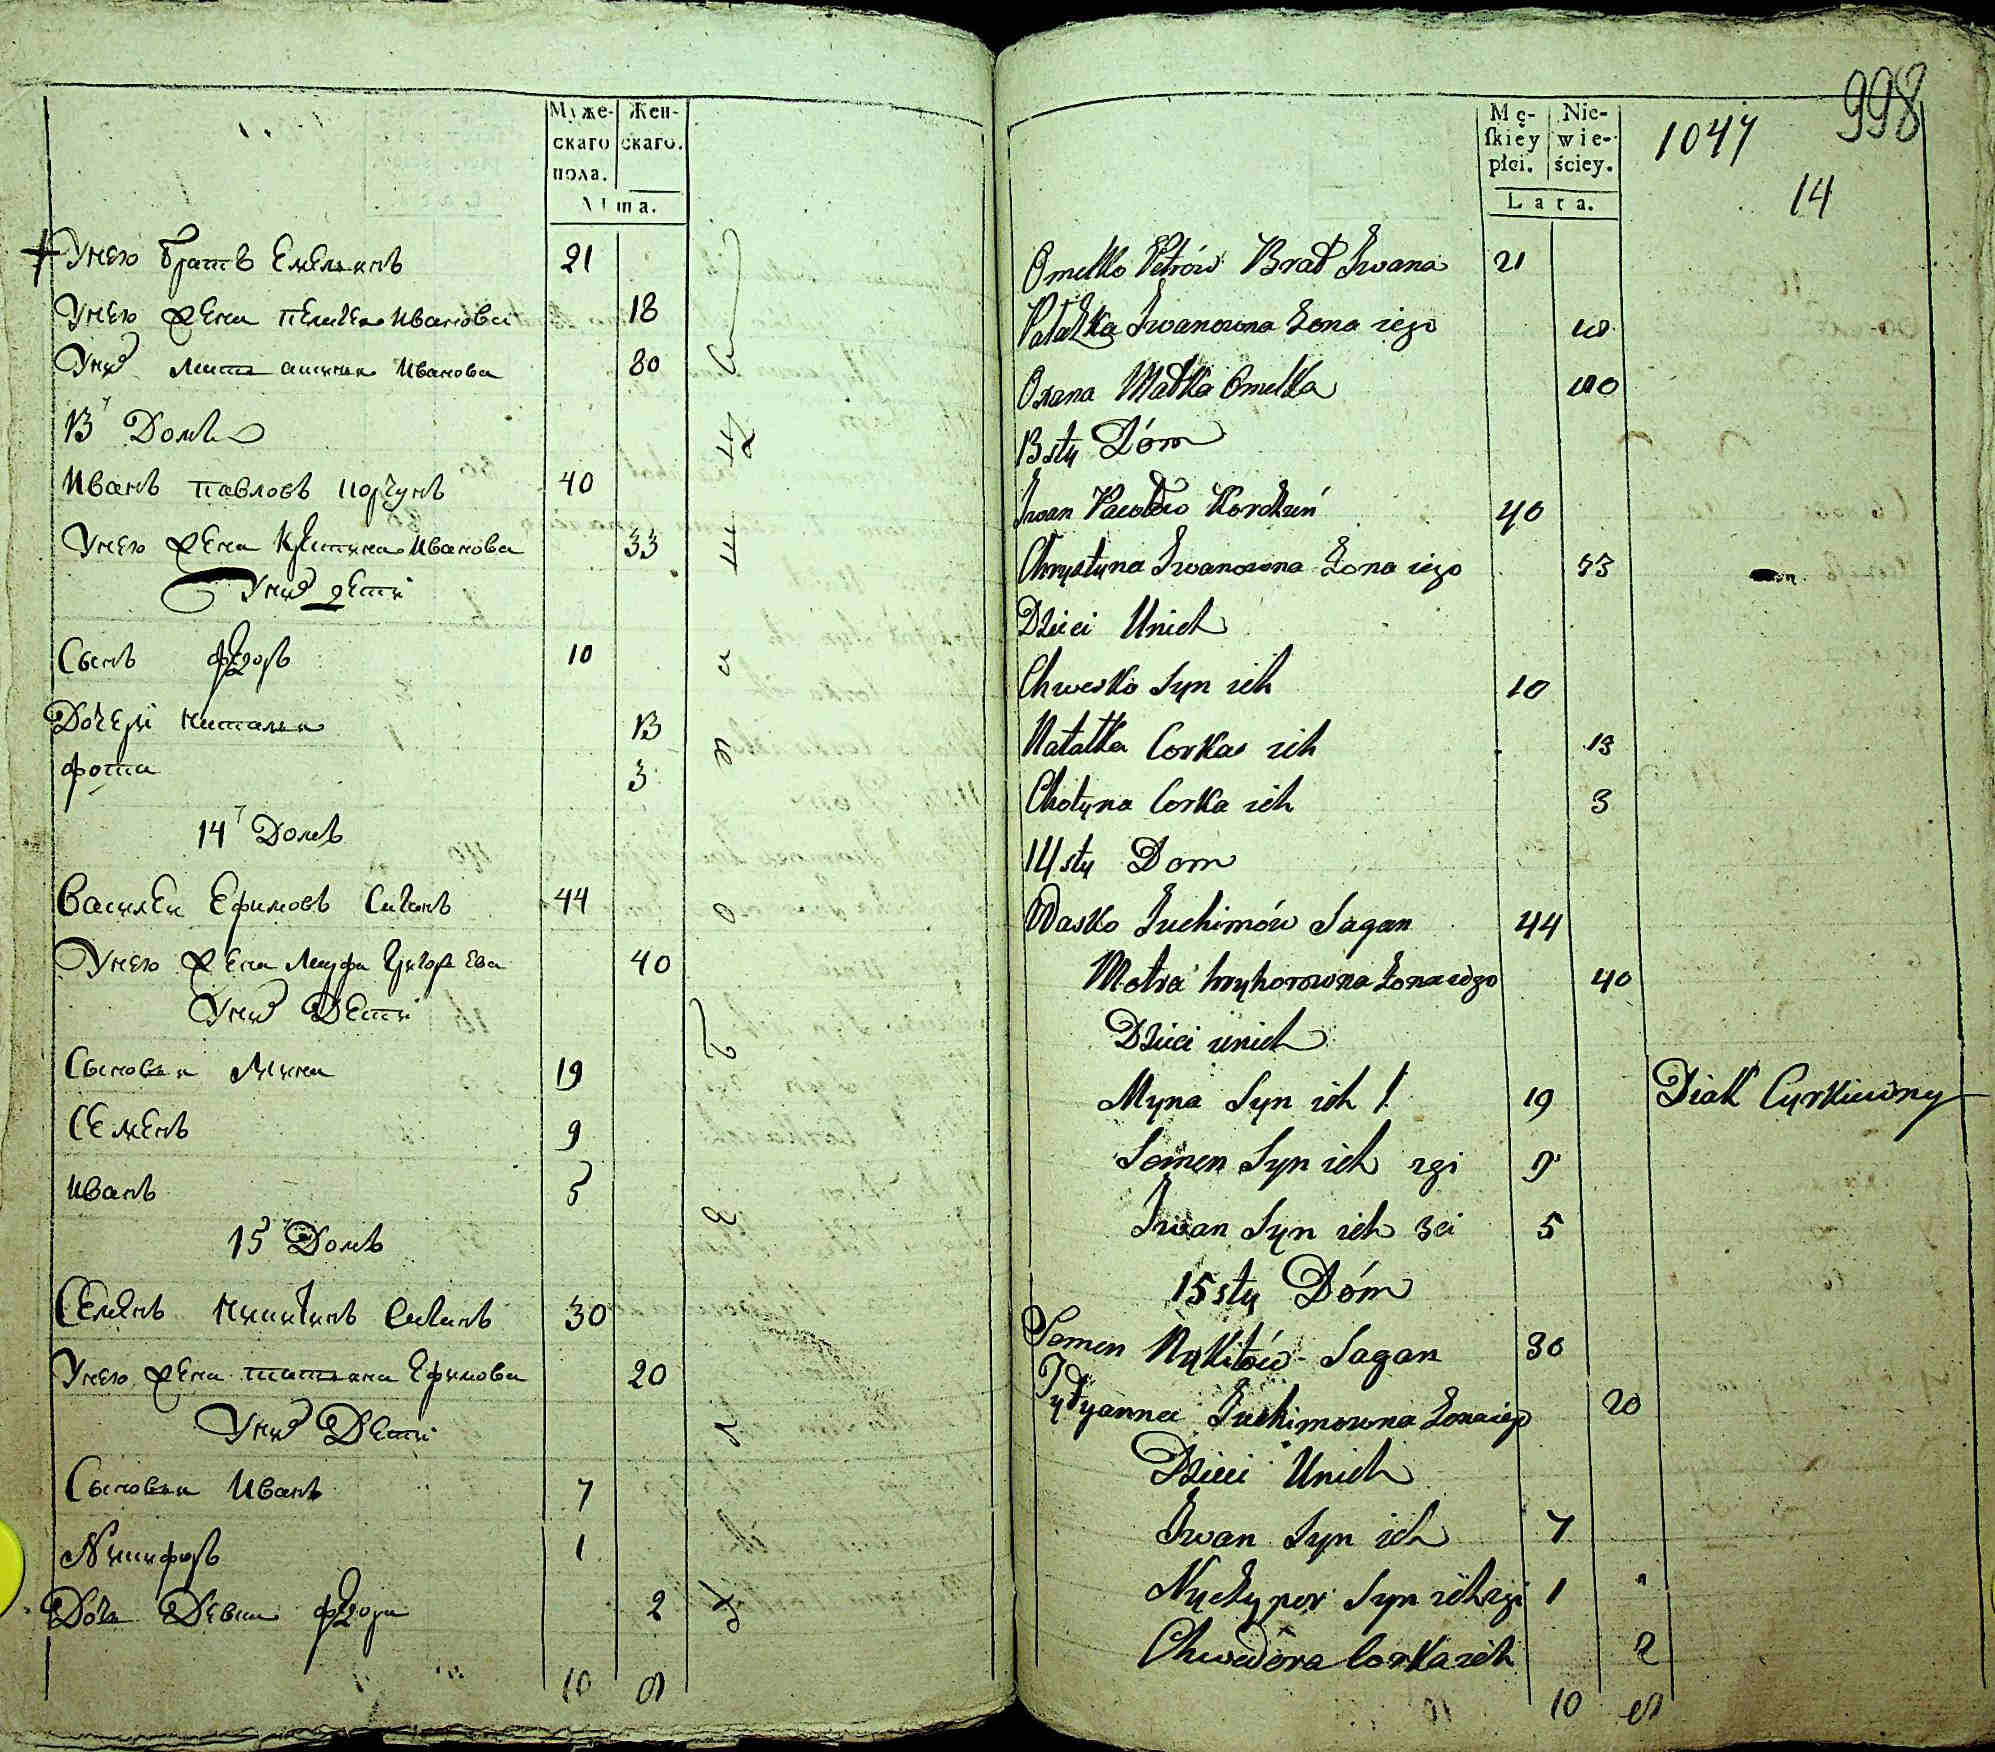 Муже-
скаго
пола.
Жен-
скаго.
Лѣта.
Унего братъ Емельянъ 21
Унего жена Пелагея Иванова 18
Унихъ мать Иванова 80
13 Домъ
Иванъ Павловъ Корчунъ 40
Унего жена Иванова 33
Унихъ дети
Сынъ Федоръ 10
Дочери Наталия 13
Фотина 3
14 Домъ
Василей Ефимовъ Саганъ 44
Унего жена Мотря 40
Унихъ Дети
Сыновья Мина 19
Семенъ 9
Иванъ 5
15 Домъ
Семенъ Никитинъ Саганъ 30
Унего жена Татьяна Ефимова 20
Унихъ Дети
Сыновья Иванъ 7
Никифоръ 1
Дочь Девка Федора 2
10 8
Mę-
ſkiey
płci.
Nie-
wie-
ściey.
Lata.
1047
998
14
Omelko Petrów Brat Jwana 21
Pałażka Jwanowna Żona iego 18
Oxana Matka Omelka 80
13sty Dóm
Jwan Pawłow Korczuń 40
Chrystyna Jwanowna Żona iego 33
Dzieci Unich
Chwedko Syn ich 10
Natalka Corka ich 13
Chotyna Corka ich 3
14sty Dom
Wasko Juchimów Sagan 44
Motra hryhorowna Żona iego 40
Dzieci unich
Myna Syn ich 1 19 Diak Cyrkiewny
Semen Syn ich 2gi 9
Jwan Syn ich 3ci 5
15sty Dóm
Semen Nykitów Sagan 30
Tytyanna Juchimowna Żona iego 20
Dzieci Unich
Jwan Syn ich 7
Nychypor Syn ich 2gi 1
Chwedora Corka ich 2
10 8